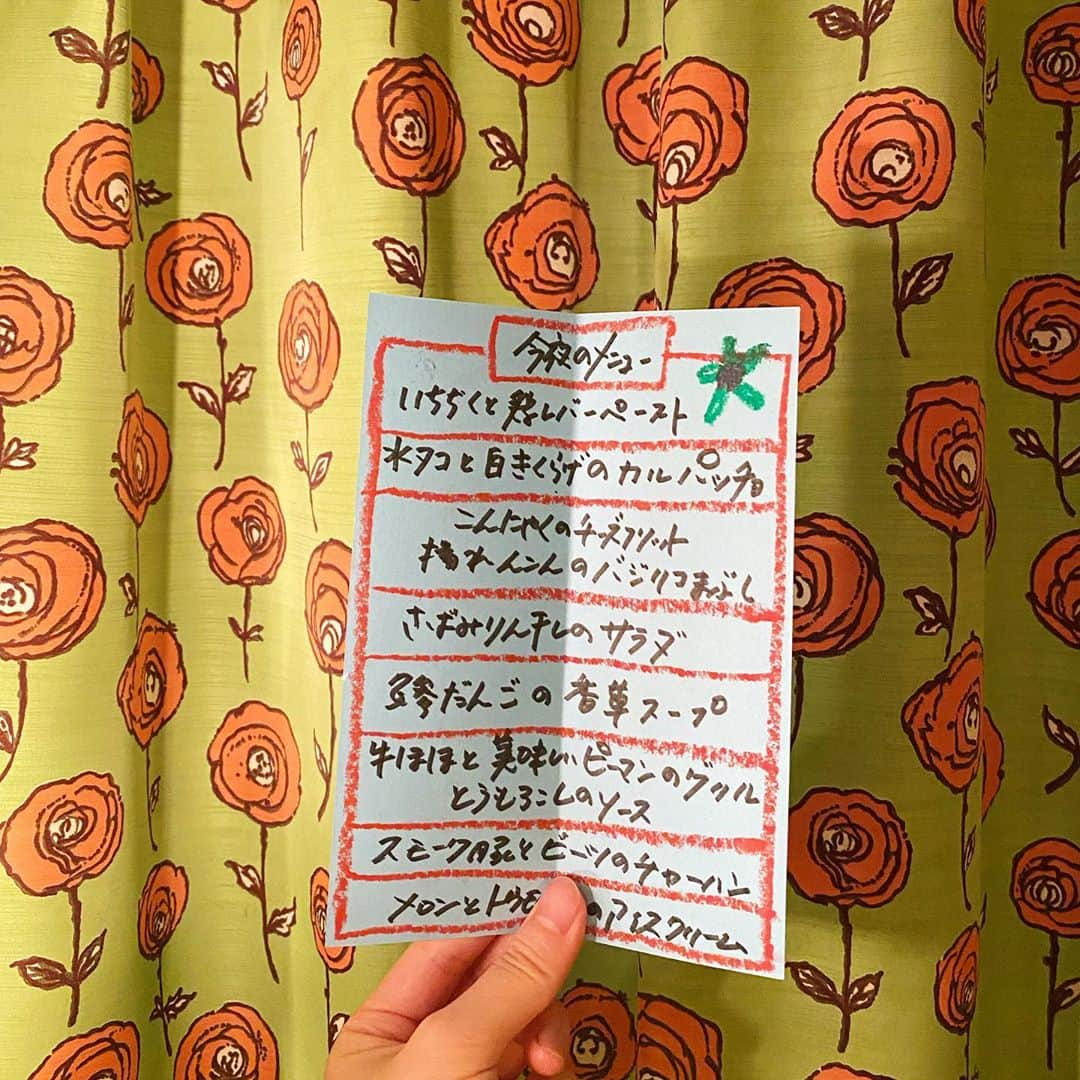 今夜のメニュー
いちぢくと鶏レバーペースト
水タコと白きくらげのカルパッチョ
こんにゃくのチーズフリット
揚れんこんのバジリコまぶし
さばみりん干しのサラダ
だんごの香草スープ
牛ほほと美味しいピーマンのグリル
とうもろこしのソース
スモーク豚とビーツのチャーハン
メロンとトウモ のアイスクリーム